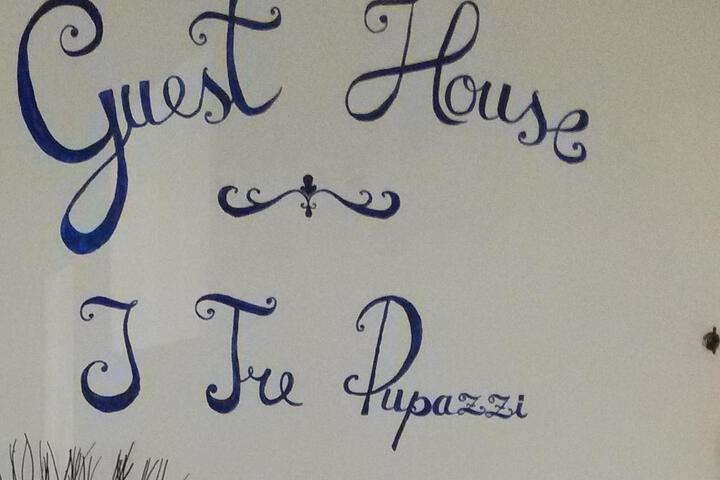 Guest House
I Tre Pupazzi